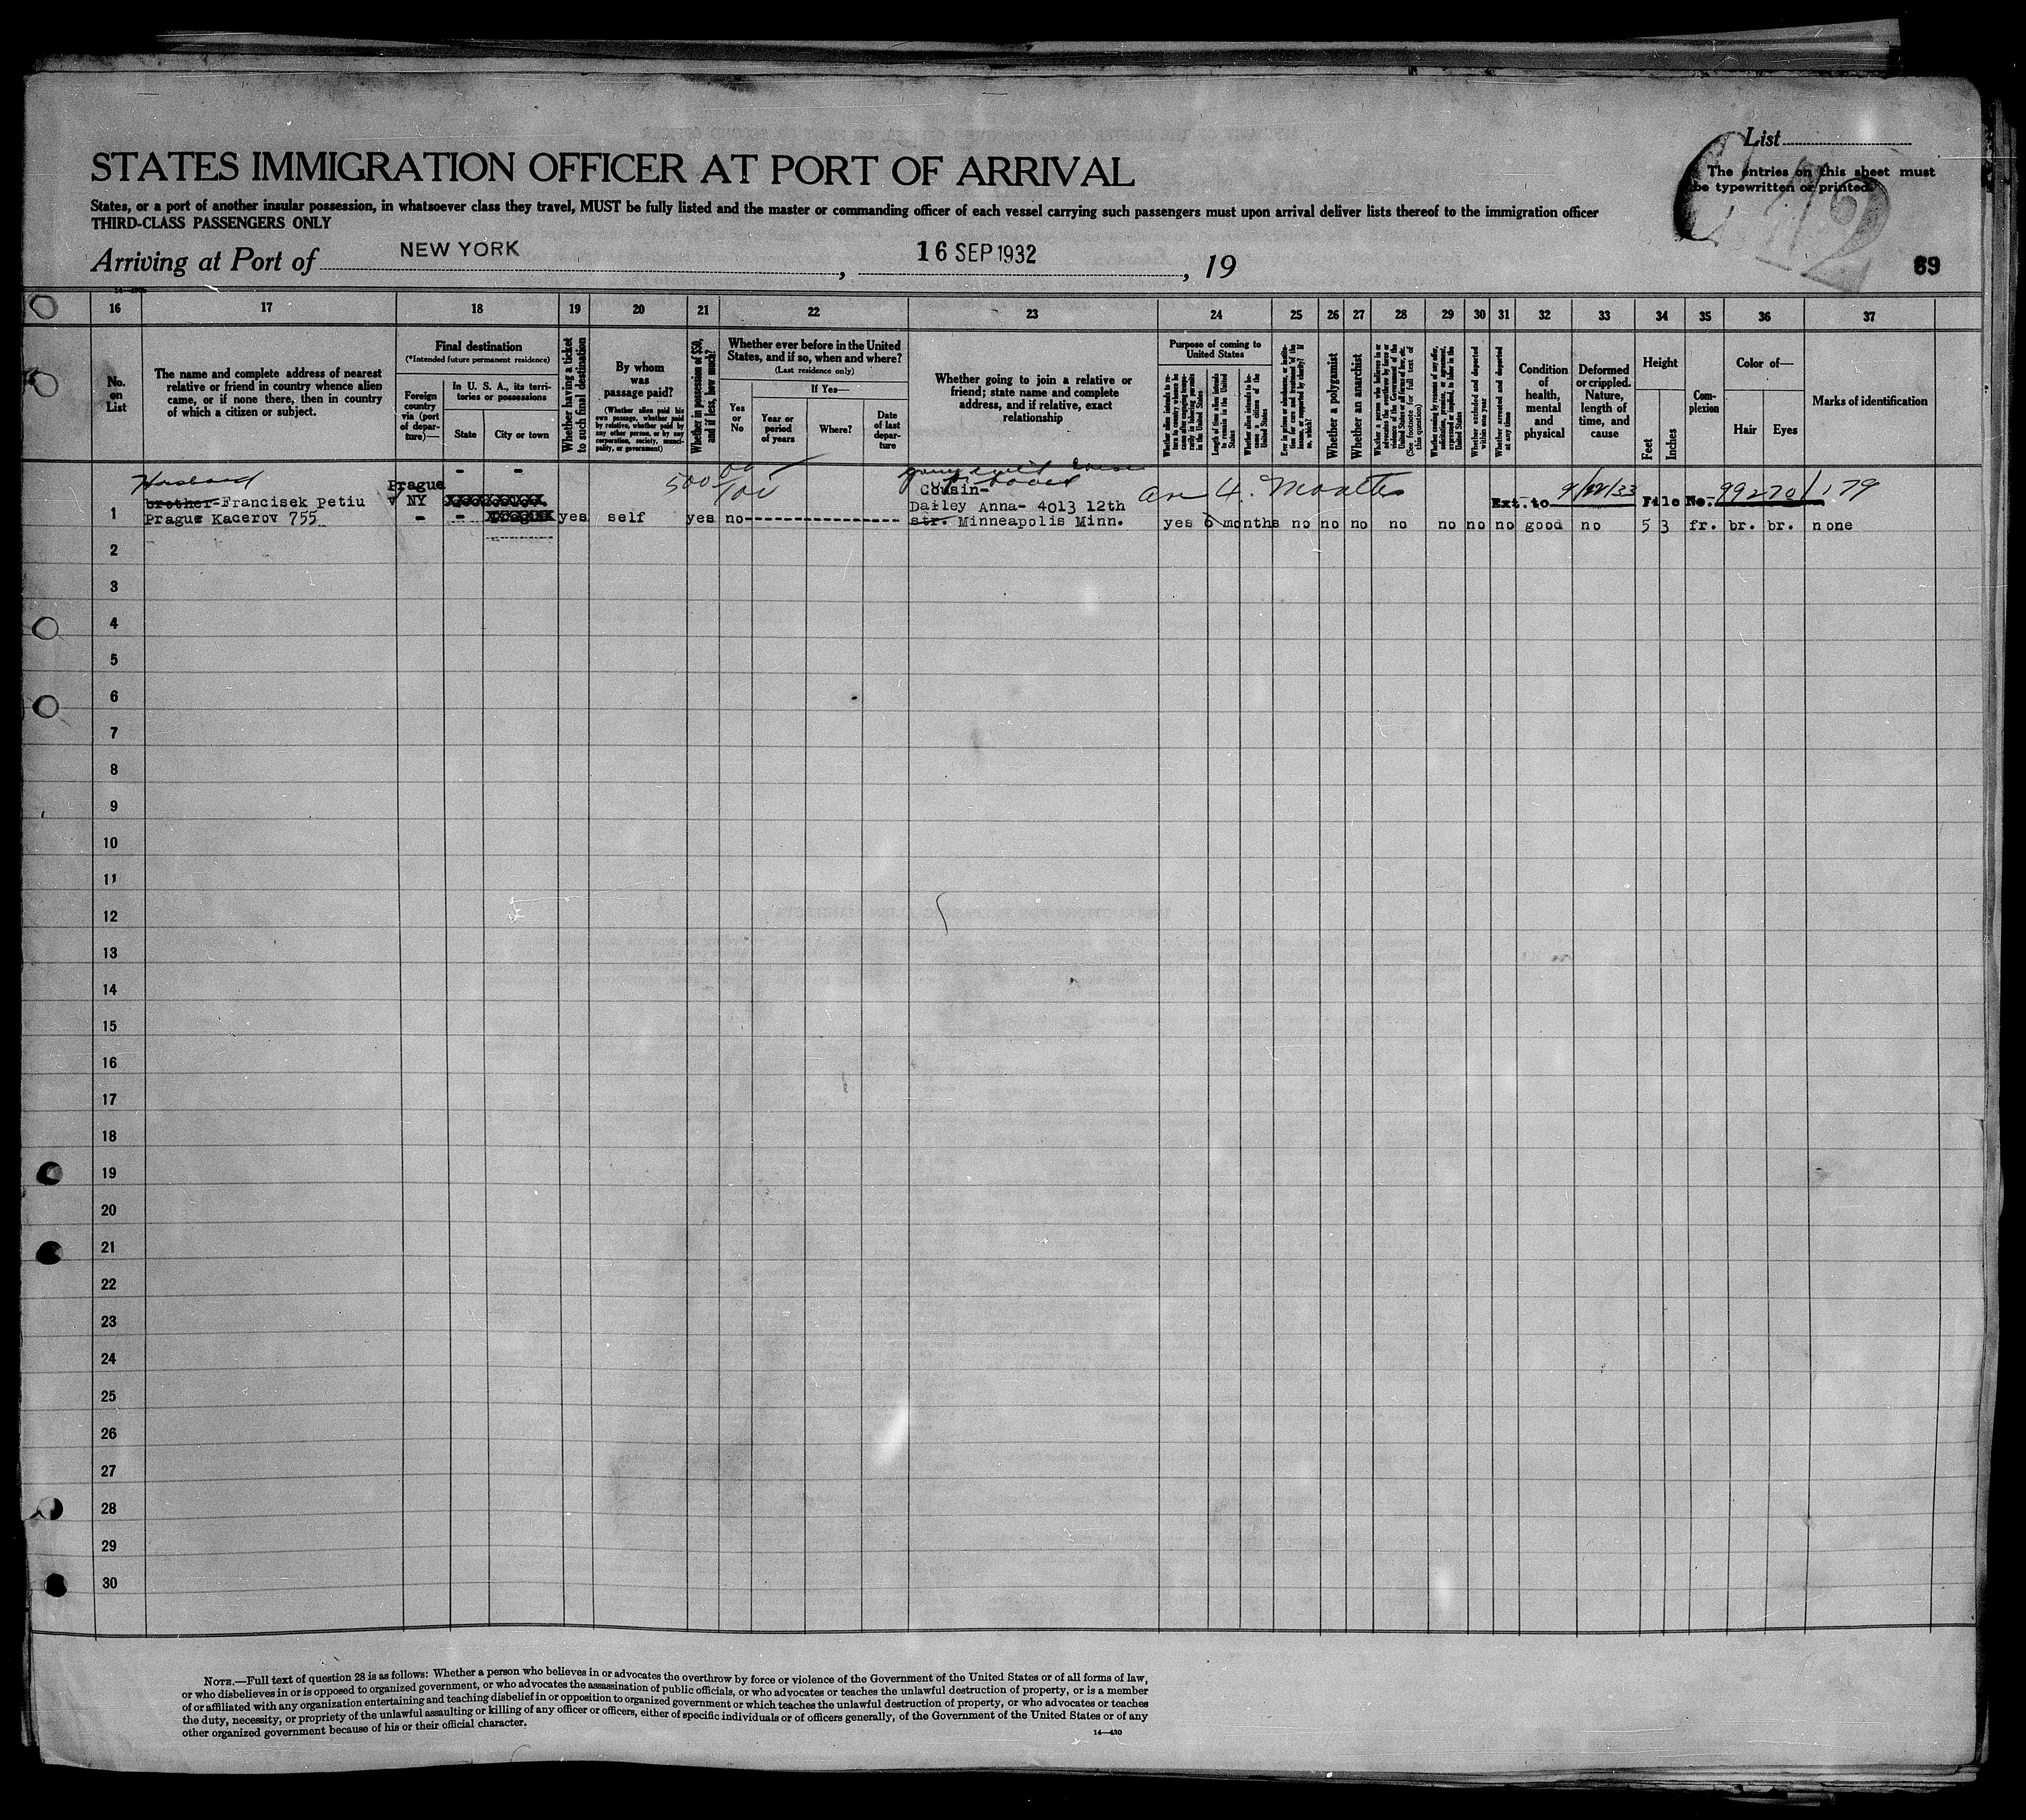 List
The entries on this sheet must
be typewritten or printed.
STATES IMMIGRATION OFFICER AT PORT OF ARRIVAL
States, or a port of another insular possession, in whatsoever class they travel, MUST be fully listed and the master or commanding officer of each vessel carrying such passengers must upon arrival deliver lists thereof to the immigration officer
THIRD-CLASS PASSENGERS ONLY
Arriving at Port of NEW YORK, 16 SEP 1932, 19
69
16 17 18 19 20 21 22 23 24 25 26 27 28 29 30 31 32 33 34 35 36 37
No.
on
List
The name and complete address of nearest
relative or friend in country whence alien
came, or if none there, then in country
of which a citizen or subject.
Final destination
(*Intended future permanent residence)
Foreign
country
via (port
of depar-
ture)—
In U. S. A., its terri-
tories or possessions
State
City or town
Whether having a ticket
to such final destination
By whom
was
passage paid?
(Whether alien paid his
own passage, whether paid
by relative, whether paid by
any other person, or by any
corporation, society, munici-
pality, or government)
Whether in possession of $50,
and if less, how much?
Whether ever before in the United
States, and if so, when and where?
(Last residence only)
Yes
or
No
If Yes—
Year or
period
of years
Where?
Date
of last
depar-
ture
Whether going to join a relative or
friend; state name and complete
address, and if relative, exact
relationship
Purpose of coming to
United States
Length of time alien intends
to remain in the United
States
Whether alien intends to be-
come a citizen of the
United States
Whether a polygamist
Whether an anarchist
(See footnote for full text of
this question)
Whether excluded and deported
within one year
Whether arrested and deported
at any time
Condition
of
health,
mental
and
physical
Deformed
or crippled.
Nature,
length of
time, and
cause
Height
Feet
Inches
Com-
plexion
Color of—
Hair
Eyes
Marks of identification
Husband
brother-Francisek Petiu
Prague Kacerov 755
Prague
v NY
yes
self
500 00/100
yes
no
Cousin-
Dailey Anna- 4013 12th
str. Minneapolis Minn.
4. Months
yes 6 months no no no no no no no good no 5 3 fr. br. br. none
Ext. to 9/ /33 File No. 99270/179
1
2
3
4
5
6
7
8
9
10
11
12
13
14
15
16
17
18
19
20
21
22
23
24
25
26
27
28
29
30
NOTE.—Full text of question 28 is as follows: Whether a person who believes in or advocates the overthrow by force or violence of the Government of the United States or of all forms of law,
or who disbelieves in or is opposed to organized government, or who advocates the assassination of public officials, or who advocates or teaches the unlawful destruction of property, or is a member
of or affiliated with any organization entertaining and teaching disbelief in or opposition to organized government or which teaches the unlawful destruction of property, or who advocates or teaches
the duty, necessity, or propriety of the unlawful assaulting or killing of any officer or officers, either of specific individuals or of officers generally, of the Government of the United States or of any
other organized government because of his or their official character.
14—430